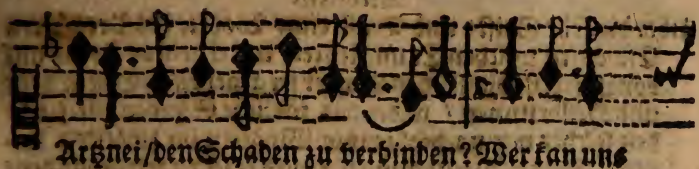 Artznei/den Schaden zu verbinden? Wer kan uns